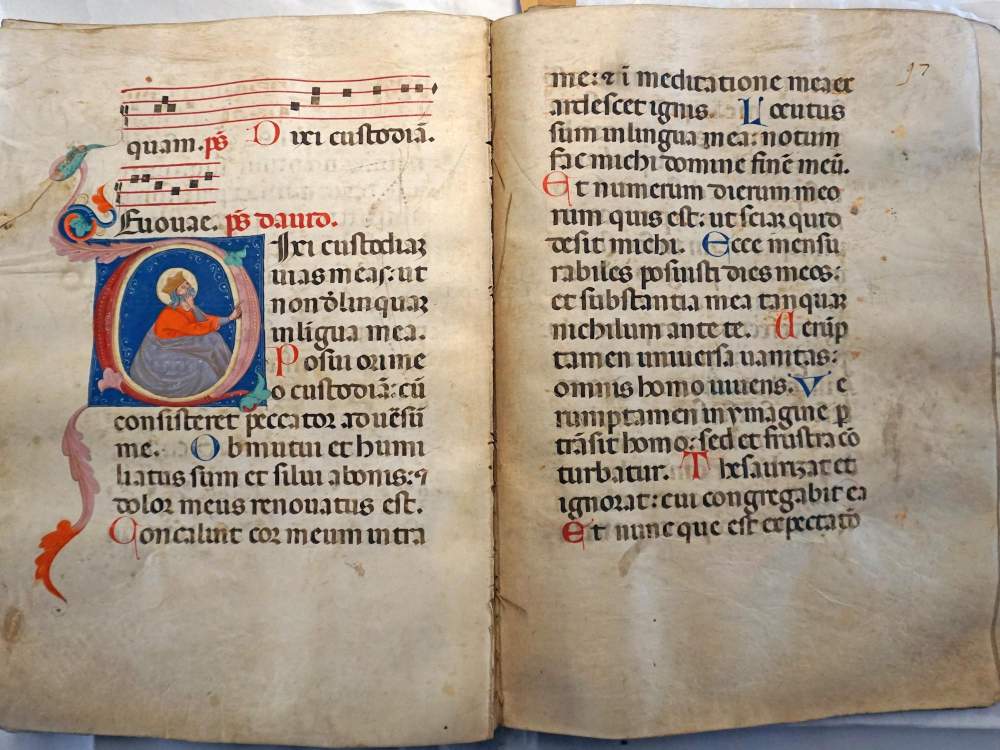 quam. ps̄ Dixi custodiā.
Euouae. ps̄ dauid.
Dixi custodiaz
uias meas: ut
non d̄linquaz
in līgua mea.
Posui ori me
o custodiā: cū
consisteret peccator aduēsū
me. Obmutui et humi
liatus sum et silui abonis: ⁊
dolor meus renouatus est.
Concaluit cor meum intra
me: ⁊ ī meditatione mea ex
ardescet ignis. Locutus
sum in lingua mea: notum
fac michi domine finē meū.
Et numerum dierum meo
rum quis est: ut sciaz quid
desit michi. Ecce mensu
rabiles posuisti dies meos:
et substantia mea tanquaz
nichilum ante te.
tamen uniuersa uanitas:
omnis homo uiuens. Ve
rumptamen in ymagine p
trāsit homo: sed et frustra cō
turbatur. Thesaurizat et
ignorat: cui congregabit ea
Et nunc que est expectatō